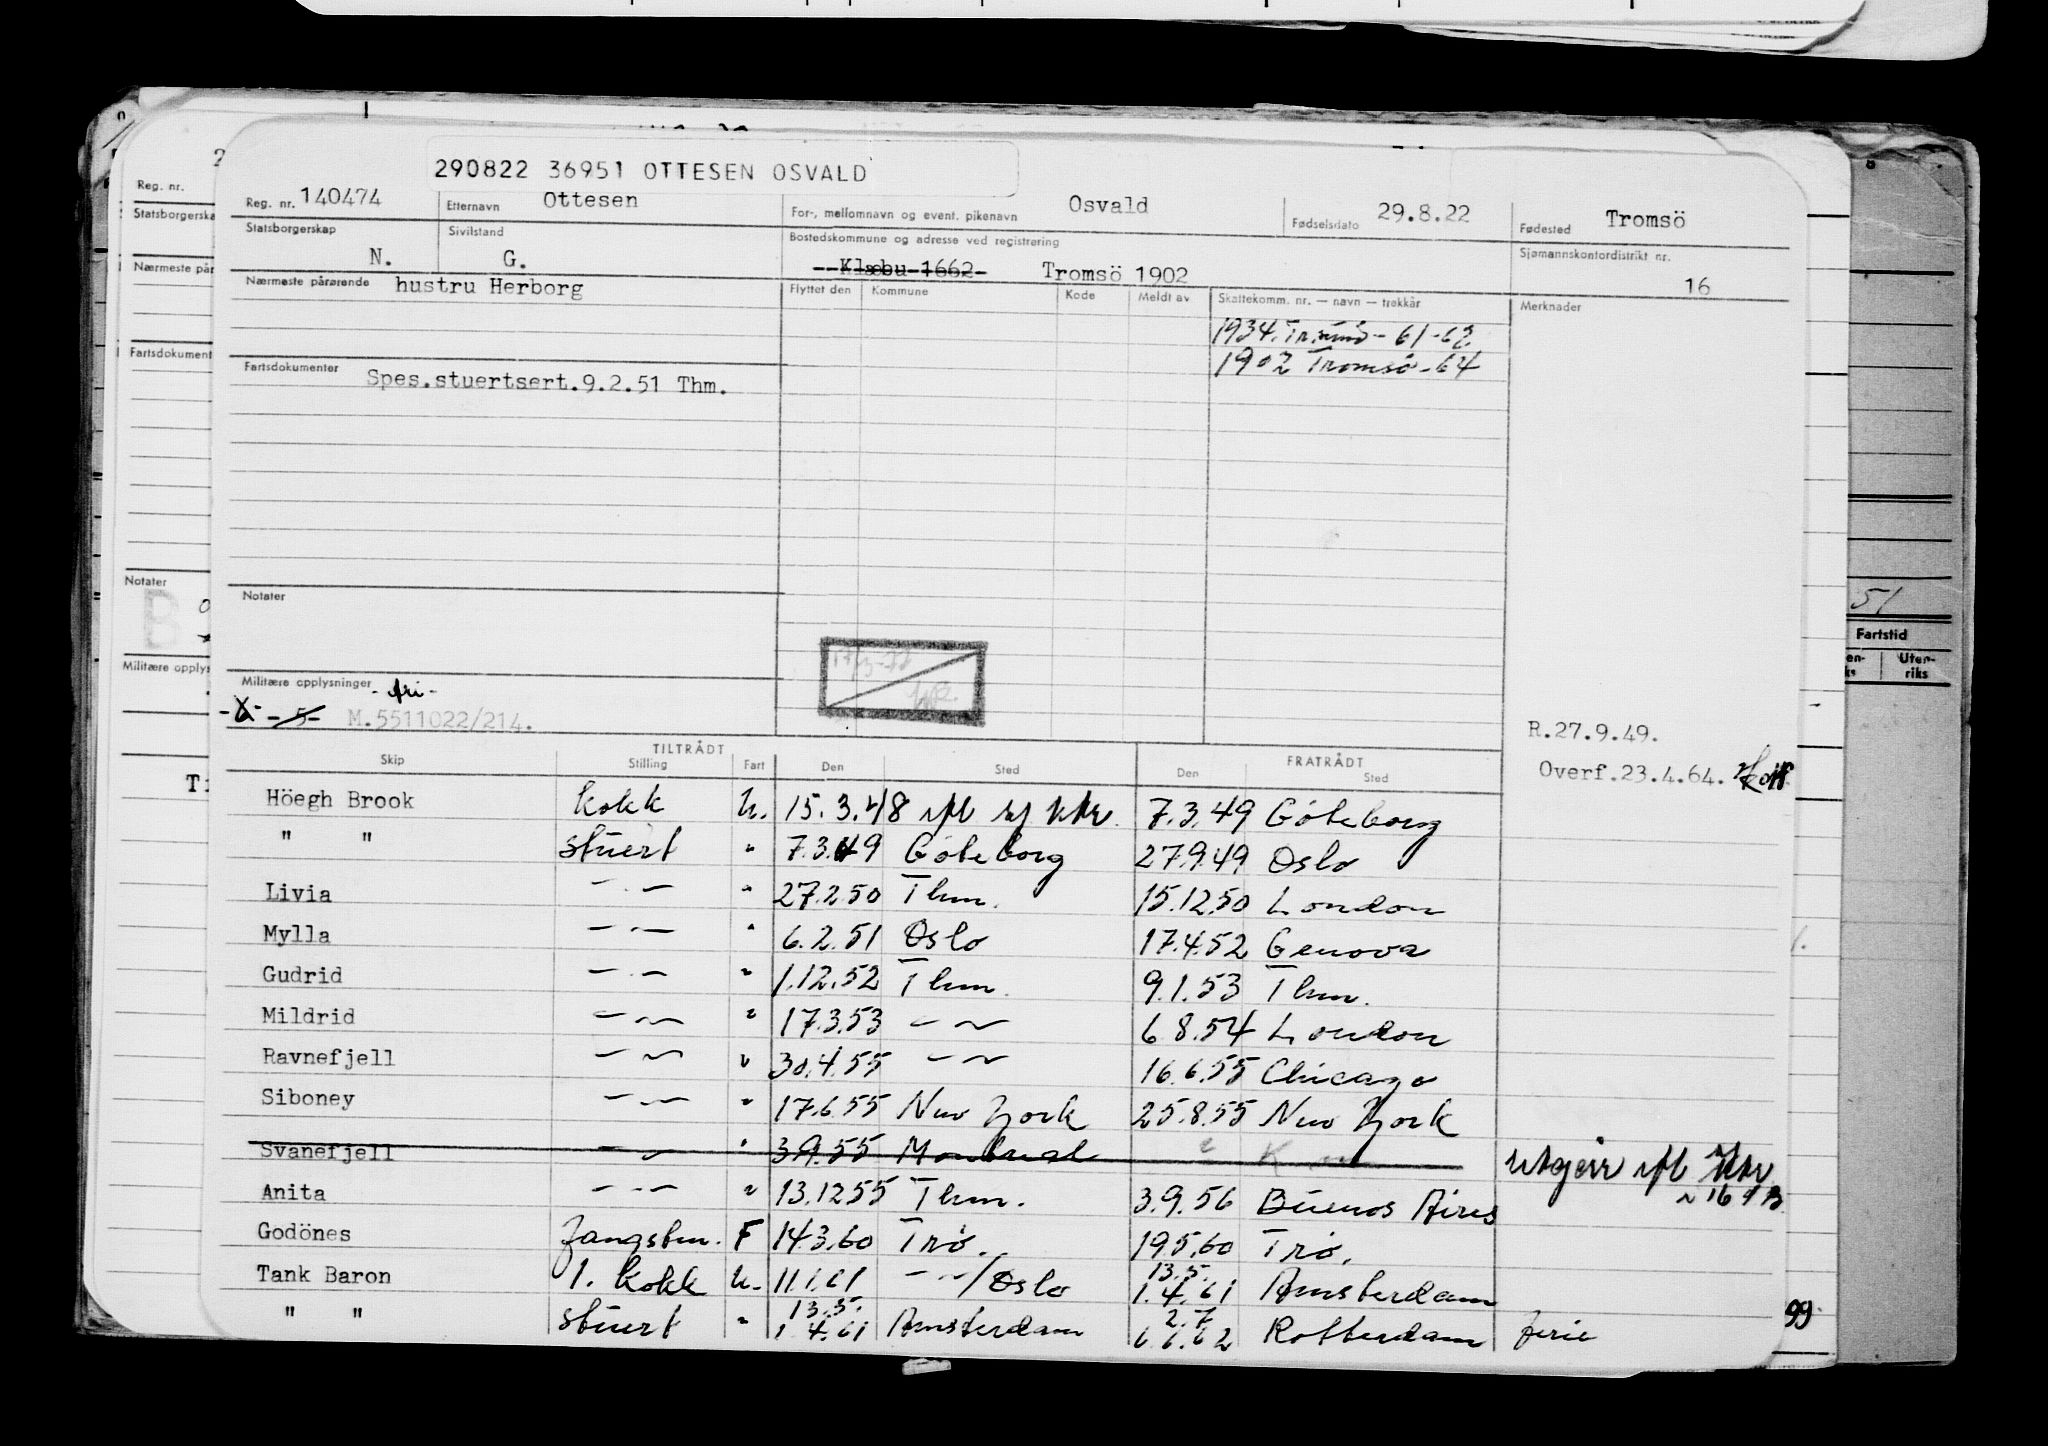 290822 36951 OTTESEN OSVALD
Reg. nr. 140474 Etternavn Ottesen For-, mellomnavn og event. pikenavn Osvald Fødselsdato 29.8.22 Fødested Tromsö
Statsborgerskap N. Sivilstand G. Bostedskommune og adresse ved registrering Klæbu 1662 Tromsö 1902 Sjømannskontordistrikt nr. 16
Nærmeste pårørende hustru Herborg Flyttet den Kommune Kode Meldt av Skattekomm. nr. — navn — trekkår Merknader
1934. Tromsö - 61-62
1902 Tromsö - 64
Fartsdokumenter Spes.stuertsert.9.2.51 Thm.
Notater
Militære opplysninger
-5- M.5511022/214.
R.27.9.49.
Overf.23.4.64.
TILTRÅDT FRATRÅDT
Skip Stilling Fart Den Sted Den Sted
Höegh Brook kokk U. 15.3.48 7.3.49 Göteborg
" " stuert " 7.3.49 Göteborg 27.9.49 Oslo
Livia — " — " 27.2.50 Thm. 15.12.50 London
Mylla — " — " 6.2.51 Oslo 17.4.52 Genova
Gudrid — " — " 1.12.52 Thm. 9.1.53 Thm.
Mildrid — " — " 17.3.53 — " — 6.8.54 London
Ravnefjell — " — " 30.4.55 — " — 16.6.55 Chicago
Siboney — " — " 17.6.55 New York 25.8.55 New York
Svanefjell — " — " 3.9.55 Montreal utgår
Anita — " — " 13.12.55 Thm. 3.9.56 Buenos Aires
Godönes fangstm. F 14.3.60 Trø. 19.5.60 Trø.
Tank Baron 1. kokk U. 11.1.61 — " —/Oslo 13.5. 1.4.61 Amsterdam
" " stuert " 13.5. 1.4.61 Amsterdam 2.7 6.6.62 Rotterdam ferie
Reg. nr.
Statsborgerska
Nærmeste på
Fartsdokument
Notater
Militære opplys
51
Fartstid
Uten-
riks
99